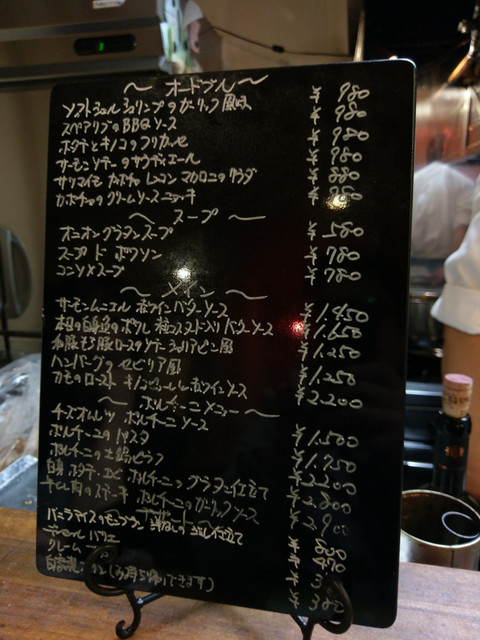 〜 オードブル 〜
ソフトシェルシュリンプのガーリック風味 ¥980
スペアリブのBBQソース ¥980
ホタテとキノコのフリカッセ ¥980
サーモンソテーのサラディエール ¥980
サツマイモ カボチャ レンコン マカロニのサラダ ¥880
カボチャのクリームソースニョッキ
〜 スープ 〜
オニオングラタンスープ ¥580
スープ ド ポワソン ¥780
コンソメスープ ¥780
〜 メイン 〜
サーモンムニエル 赤ワインバターソース ¥1,450
バターソース ¥1,650
豚ロースのソテー シュリアピン風 ¥1,250
ハンバーグ セビリア風 ¥1,250
カモのロースト ¥2,200
〜 ポルチーニメニュー 〜
チーズオムレツ ポルチーニソース ¥1,500
ポルチーニのパスタ ¥1,750
ポルチーニの土鍋ピラフ ¥2,200
ホタテ、エビ ポルチーニのグラタン仕立て ¥2,800
牛ヒレ肉のステーキ ポルチーニのガーリックソース ¥2,900
デザート
バニラアイスのモンブラン ¥800
¥470
クレーム
¥380